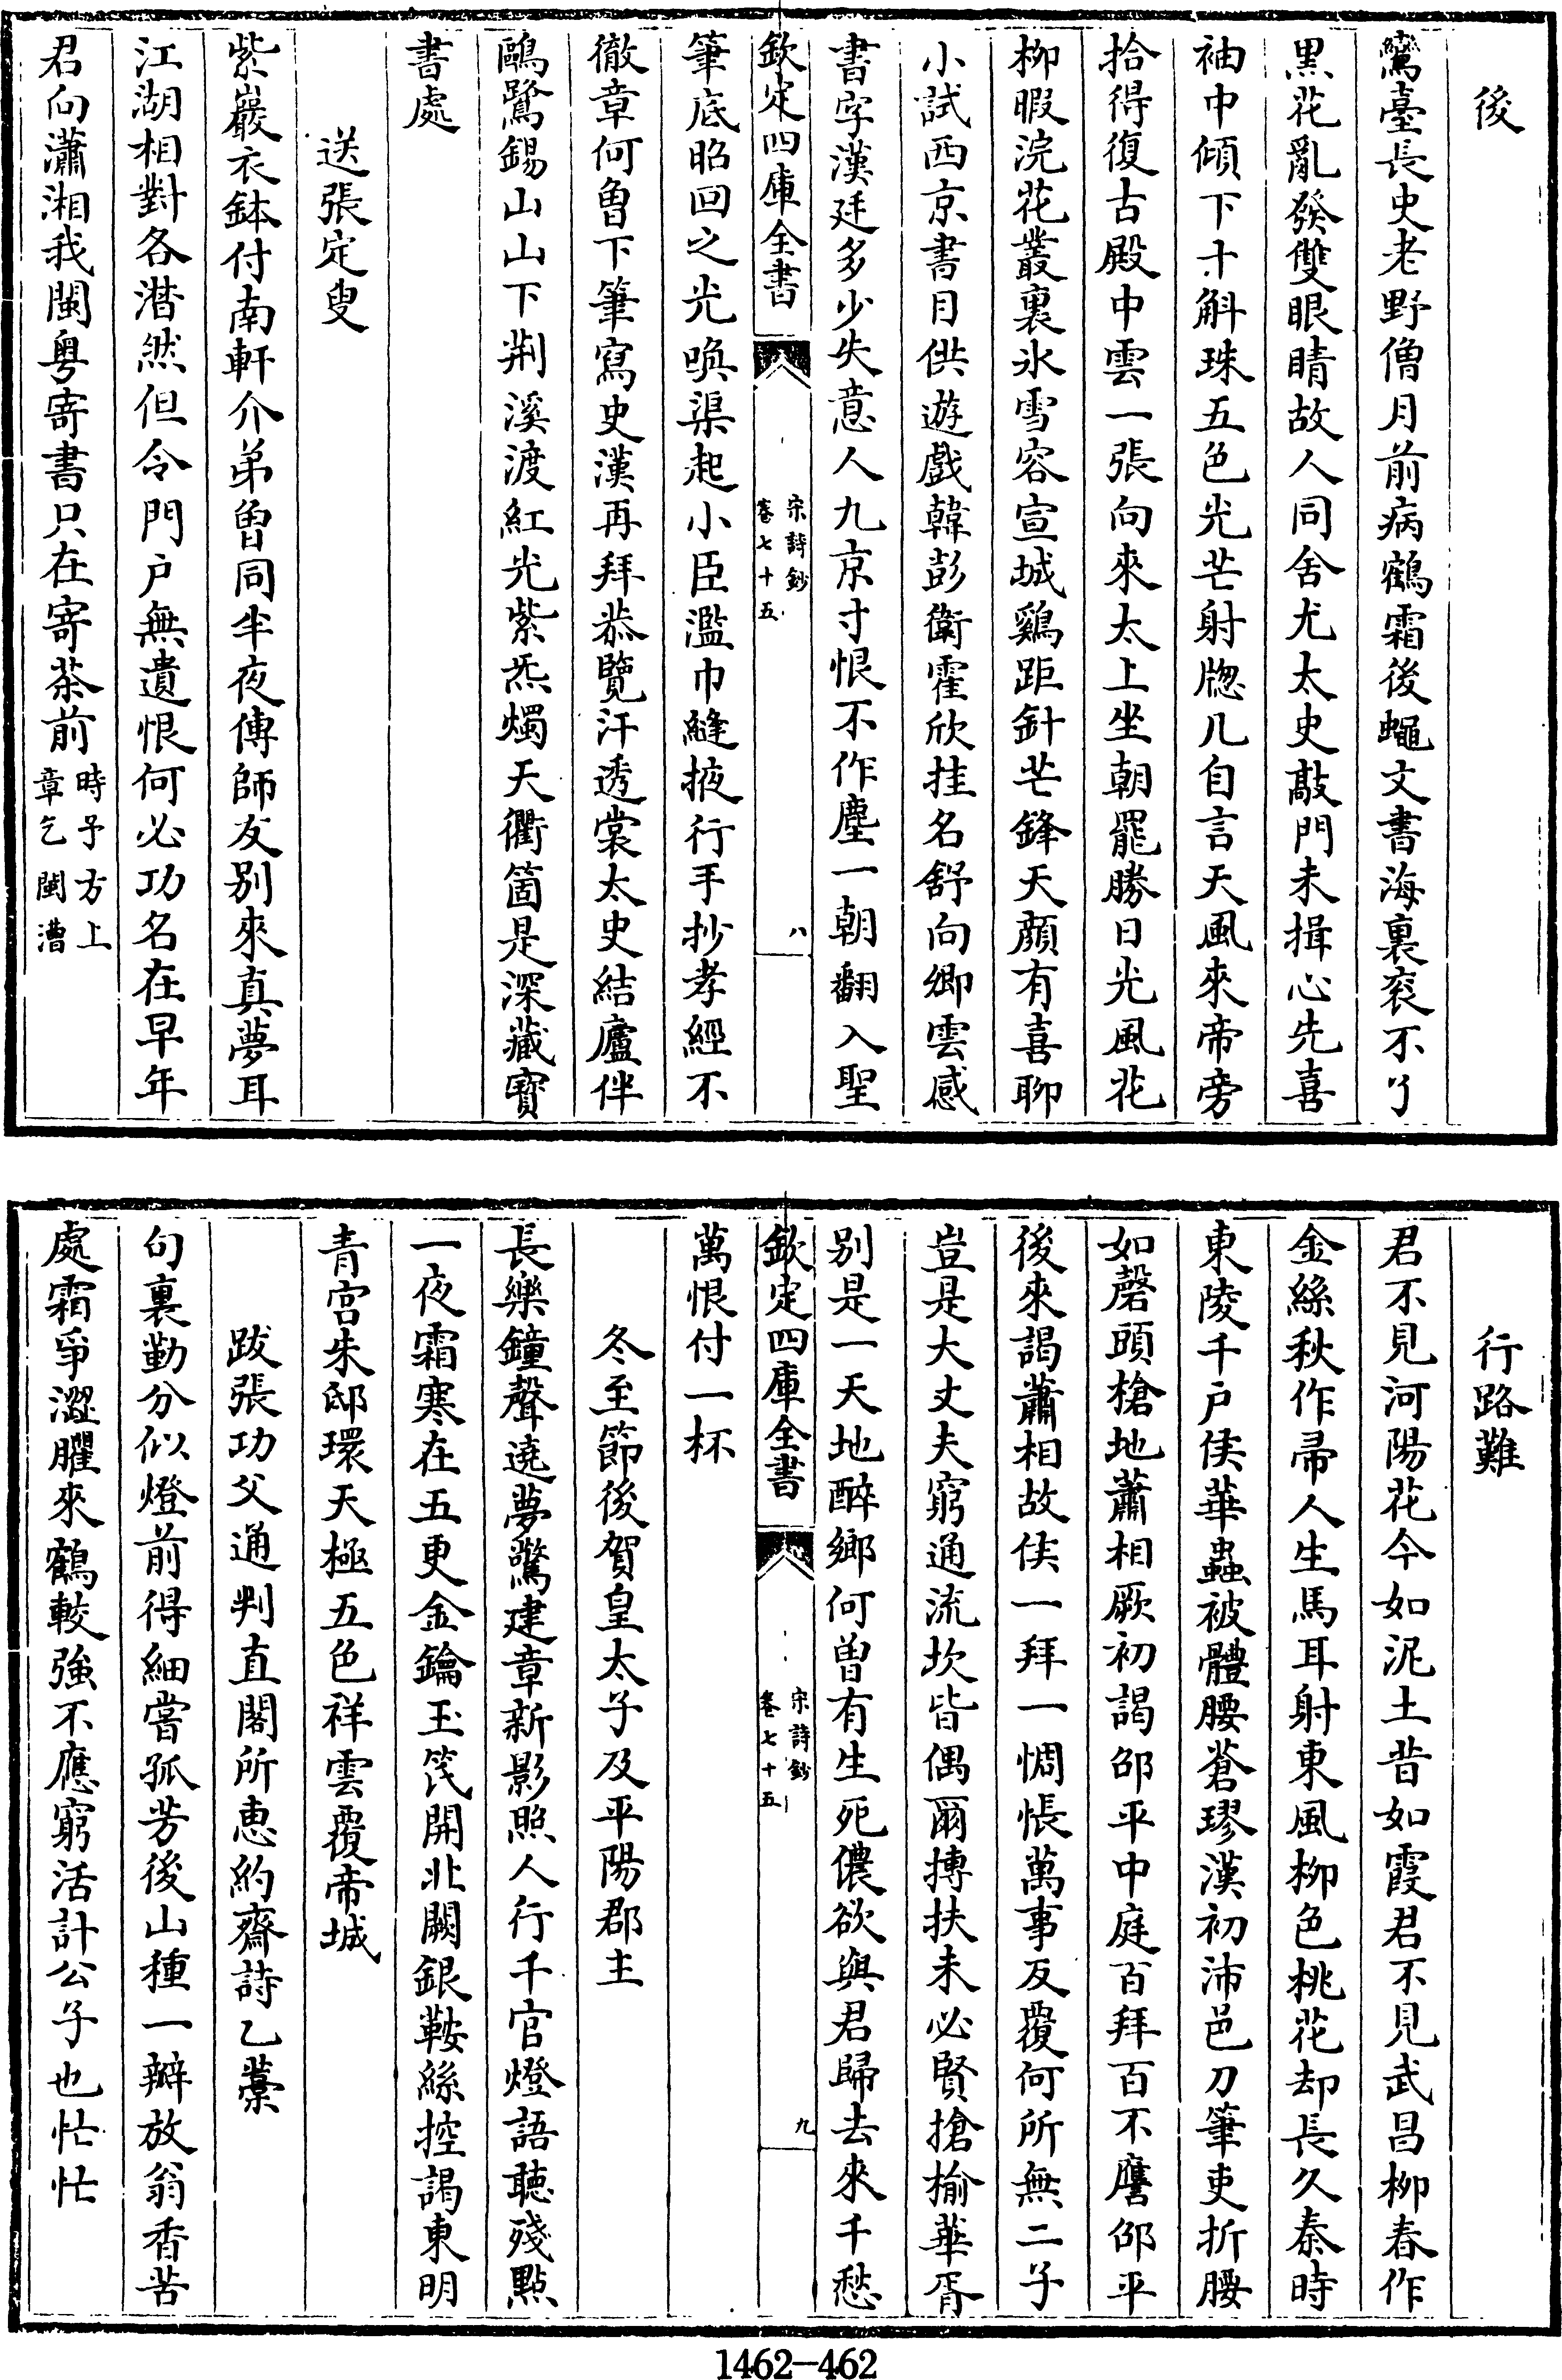 後
鸞臺長史老野僧月前病鶴霜後蠅文書海裏衮不了
黒花亂發雙眼睛故人同舍尤太史敲門未揖心先喜
袖中傾下十斛珠五色光芒射牎几自言天風來帝旁
拾得復古殿中雲一張向來太上坐朝罷勝日光風花
柳暇浣花叢裏氷雪容宣城鷄距針芒鋒天顔有喜聊
小試西京書目供遊戲韓彭衛霍欣挂名舒向卿雲感
書字漢廷多少失意人九京寸恨不作塵一朝翻入聖
欽定四庫全書
宋詩鈔
卷七十五
八
筆底昭回之光喚渠起小臣濫巾縫掖行手抄孝經不
徹章何曽下筆寫史漢再拜恭覽汗透裳太史結廬伴
鷗鷺錫山山下荆溪渡紅光紫炁燭天衢箇是深藏寳
書處
送張定叟
紫巖衣鉢付南軒介弟曽同半夜傳師友别來真夢耳
江湖相對各潸然但令門户無遺恨何必功名在早年
君向瀟湘我閩粤寄書只在寄茶前時予方上章乞閩漕
行路難
君不見河陽花今如泥土昔如霞君不見武昌柳春作
金絲秋作帚人生馬耳射東風柳色桃花却長久秦時
東陵千户侯華蟲被體腰蒼璆漢初沛邑刀筆吏折腰
如磬頭搶地蕭相厥初謁邵平中庭百拜百不譍邵平
後來謁蕭相故侯一拜一惆悵萬事反覆何所無二子
豈是大丈夫窮通流坎皆偶爾摶扶未必賢搶榆華胥
别是一天地醉鄉何曽有生死儂欲與君歸去來千愁
欽定四庫全書
宋詩鈔
卷七十五
九
萬恨付一杯
冬至節後賀皇太子及平陽郡主
長樂鐘聲遶夢驚建章新影照人行千官燈語聽殘點
一夜霜寒在五更金鑰玉筦開北闕銀鞍絲控謁東明
青宫朱邸環天極五色祥雲覆帝城
跋張功父通判直閣所惠約齋詩乙藁
句裏勤分似燈前得細嘗孤芳後山種一瓣放翁香苦
處霜爭澀臞來鶴較强不應窮活計公子也忙忙
1462-462